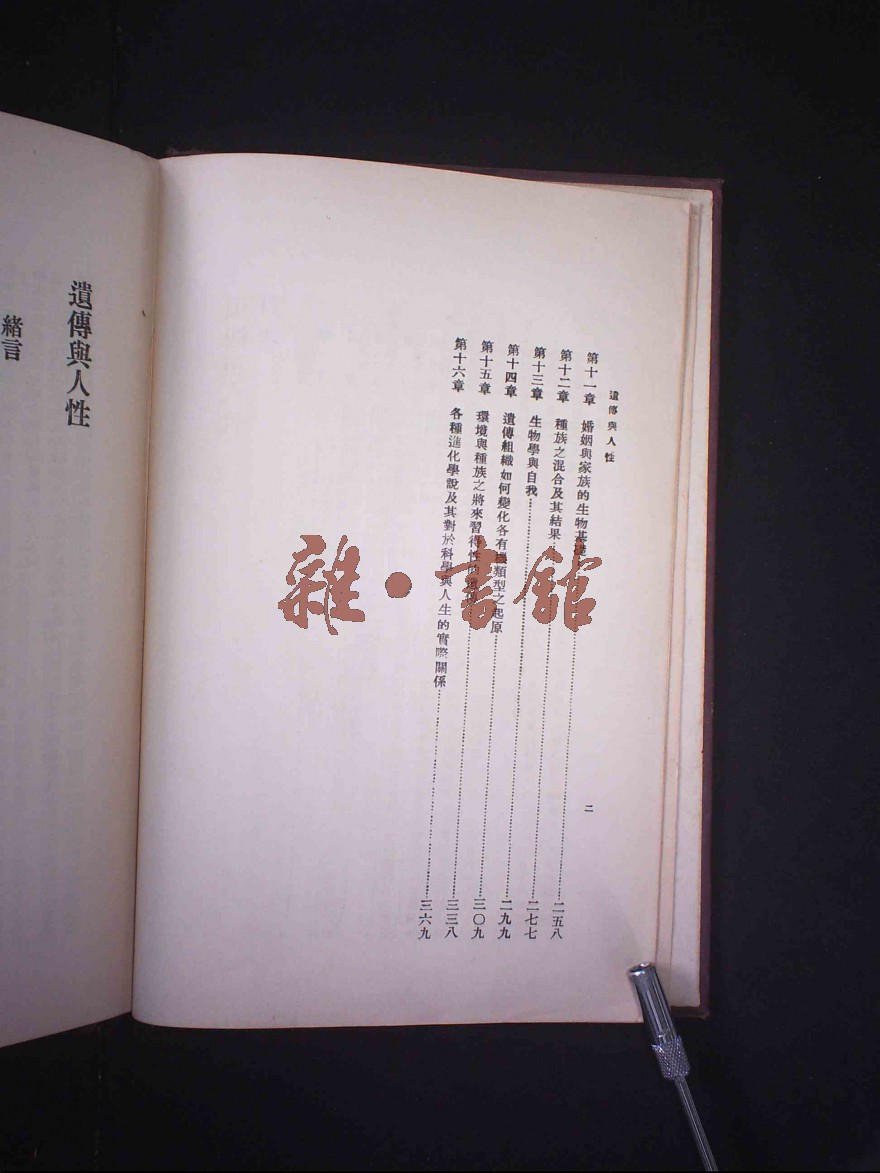 遺傳與人性
二
第十一章　婚姻與家族的生物基礎……二五八
第十二章　種族之混合及其結果……二七七
第十三章　生物學與自我……二九九
第十四章　遺傳組織如何變化各有機類型之起原……三〇九
第十五章　環境與種族之將來習得性的……三三八
第十六章　各種進化學說及其對於科學與人生的實際關係……三六九
遺傳與人性
緒言
雜·書館